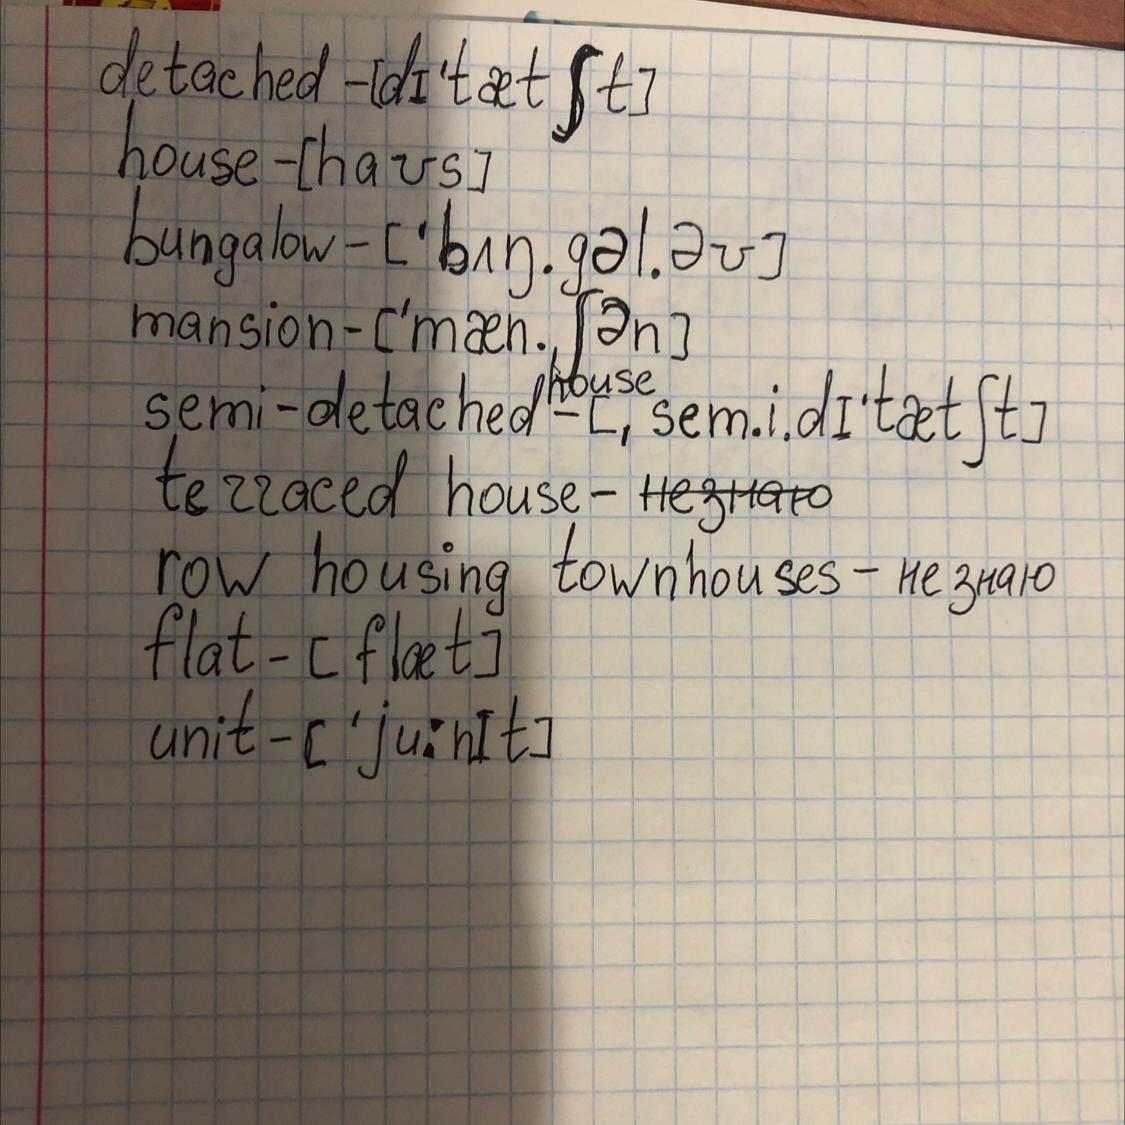 detached -[dɪ'tætʃt]
house -[haʊs]
bungalow - ['bʌŋ.ɡəl.əʊ]
mansion - ['mæn.ʃən]
semi-detached house - [ˌsem.i.dɪ'tætʃt]
terraced house - незнаю
row housing townhouses - не знаю
flat - [flæt]
unit - ['ju:nɪt]